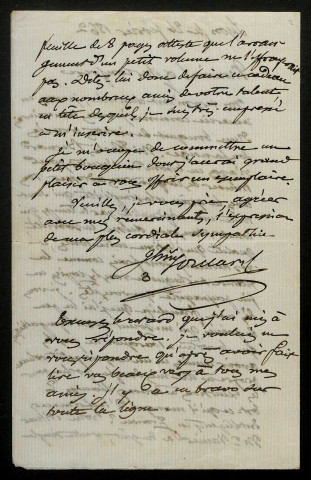 feuille de 8 pages atteste que l'arran-
gement d'un petit volume ne l'effrayerait
pas. Dites lui donc de faire ce cadeau
aux nombreux amis de votre talent
en tête desquels, je suis très empressé
à m'inscrire.
Je m'occupe de commettre un
petit bouquin dont j'aurai grand
plaisir à vous offrir un exemplaire.
Veuillez, je vous prie, agréer
avec mes remerciements, l'expression
de ma plus cordiale sympathie
Excusez le retard que j'ai mis à
vous répondre. Je voulais ne
vous répondre qu'après avoir fait
lire vos beaux vers à tous mes
amis. Il y a eu bravo sur
toute la ligne.